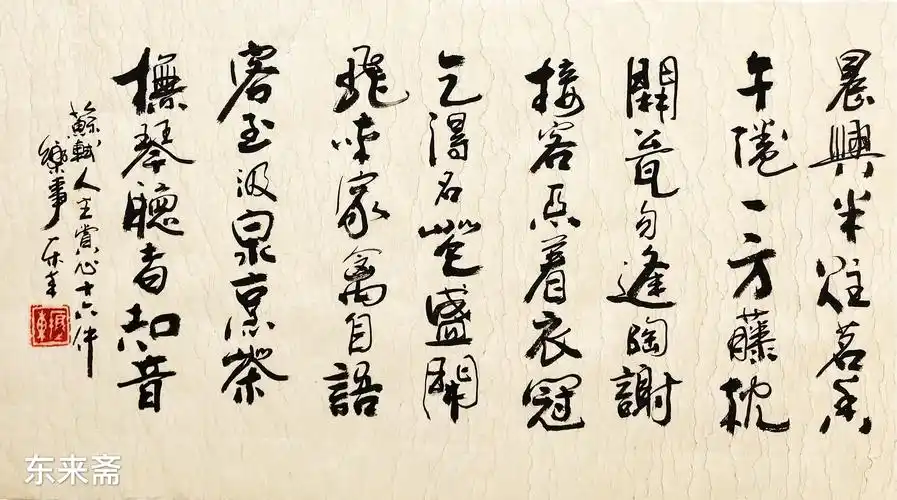 晨興半炷茗香
午倦一方藤枕
開瓮勿逢陶謝
接客不着衣冠
乞得名花盛開
飛來家禽自語
客至汲泉烹茶
撫琴聽者知音
蘇軾人生賞心十六件
樂事 东来
东来斋